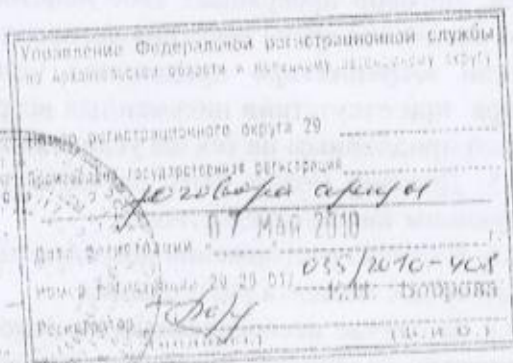 Управление Федеральной регистрационной службы
по Архангельской области и Ненецкому автономному округу
Номер регистрационного округа 29
Произведена государственная регистрация
договора аренды
Дата регистрации 07 МАЯ 2010
Номер регистрации 29-29-01/ 035/2010-408
Регистратор Боброва
(подпись) (Ф.И.О.)